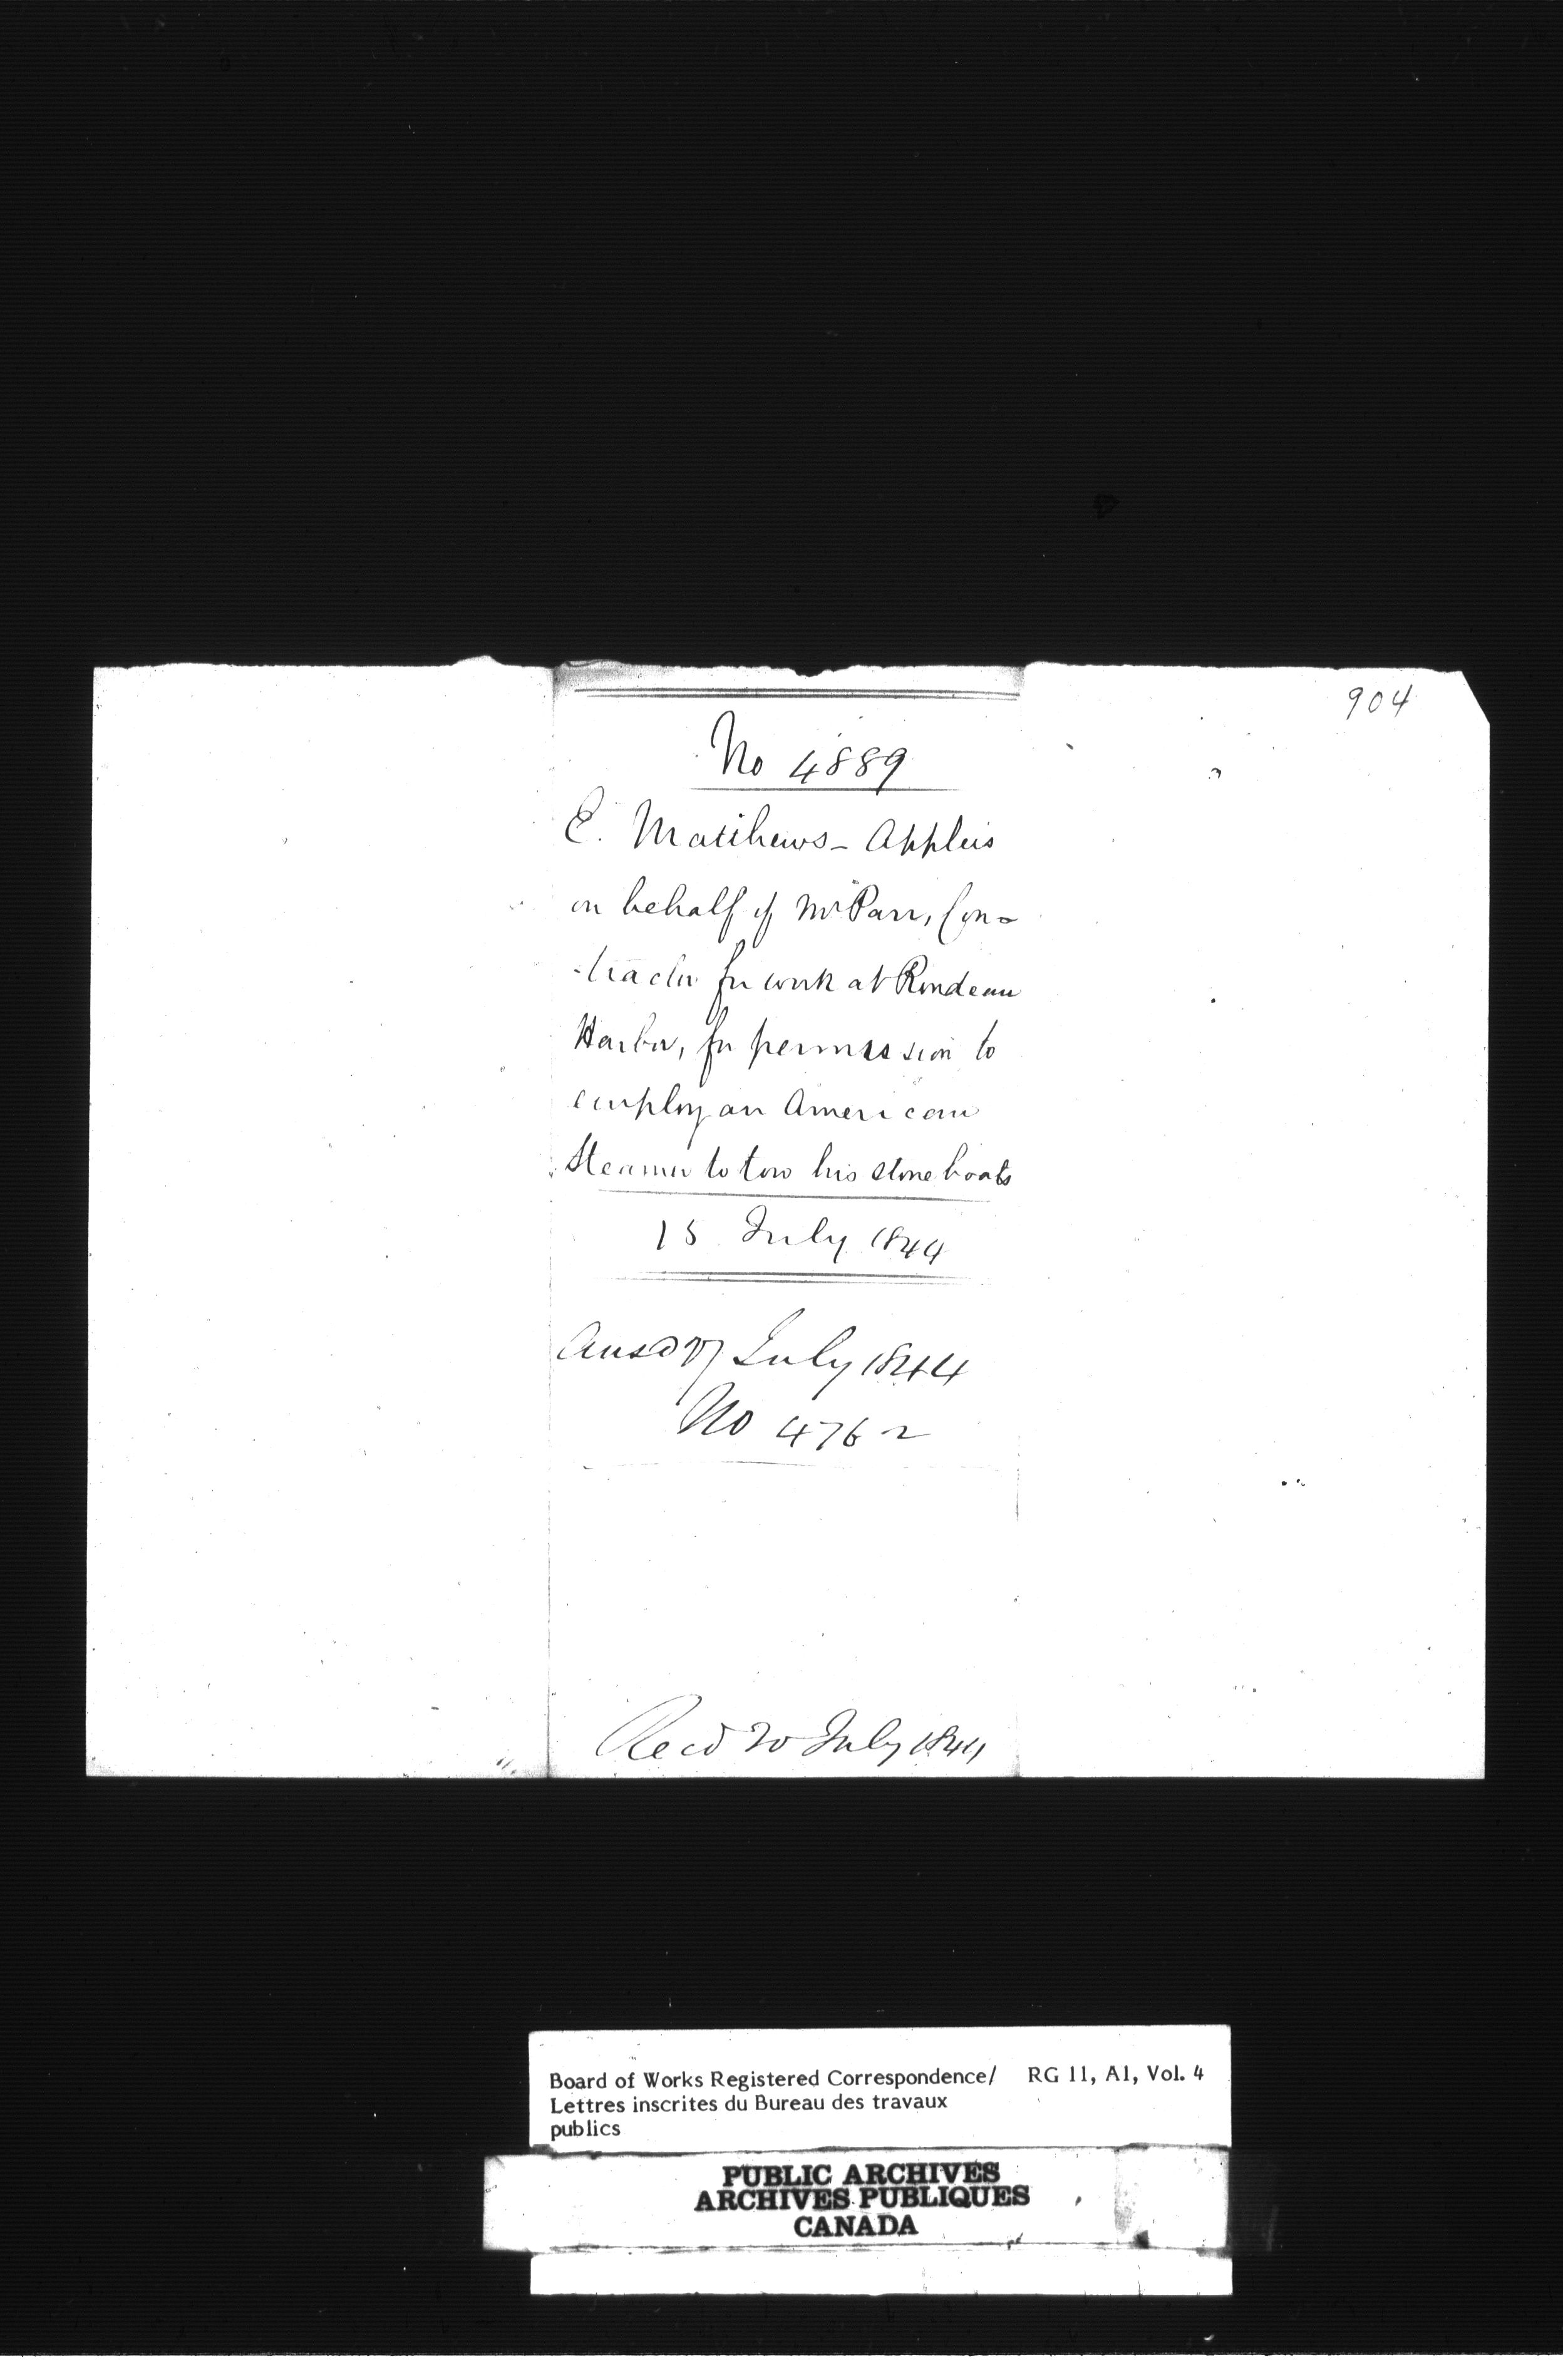 904
No 4889
E. Matthews - Applies
on behalf of Mr Parr, Con=
-tractor for work at Rondeau
Harbor, for permission to
employ an American
Steamer to tow his stone boats
15 July 1844
Ansd July 1844
No 4762
Recd 20 July 1844
Board of Works Registered Correspondence/ RG 11, A1, Vol. 4
Lettres inscrites du Bureau des travaux
publics
PUBLIC ARCHIVES
ARCHIVES PUBLIQUES
CANADA